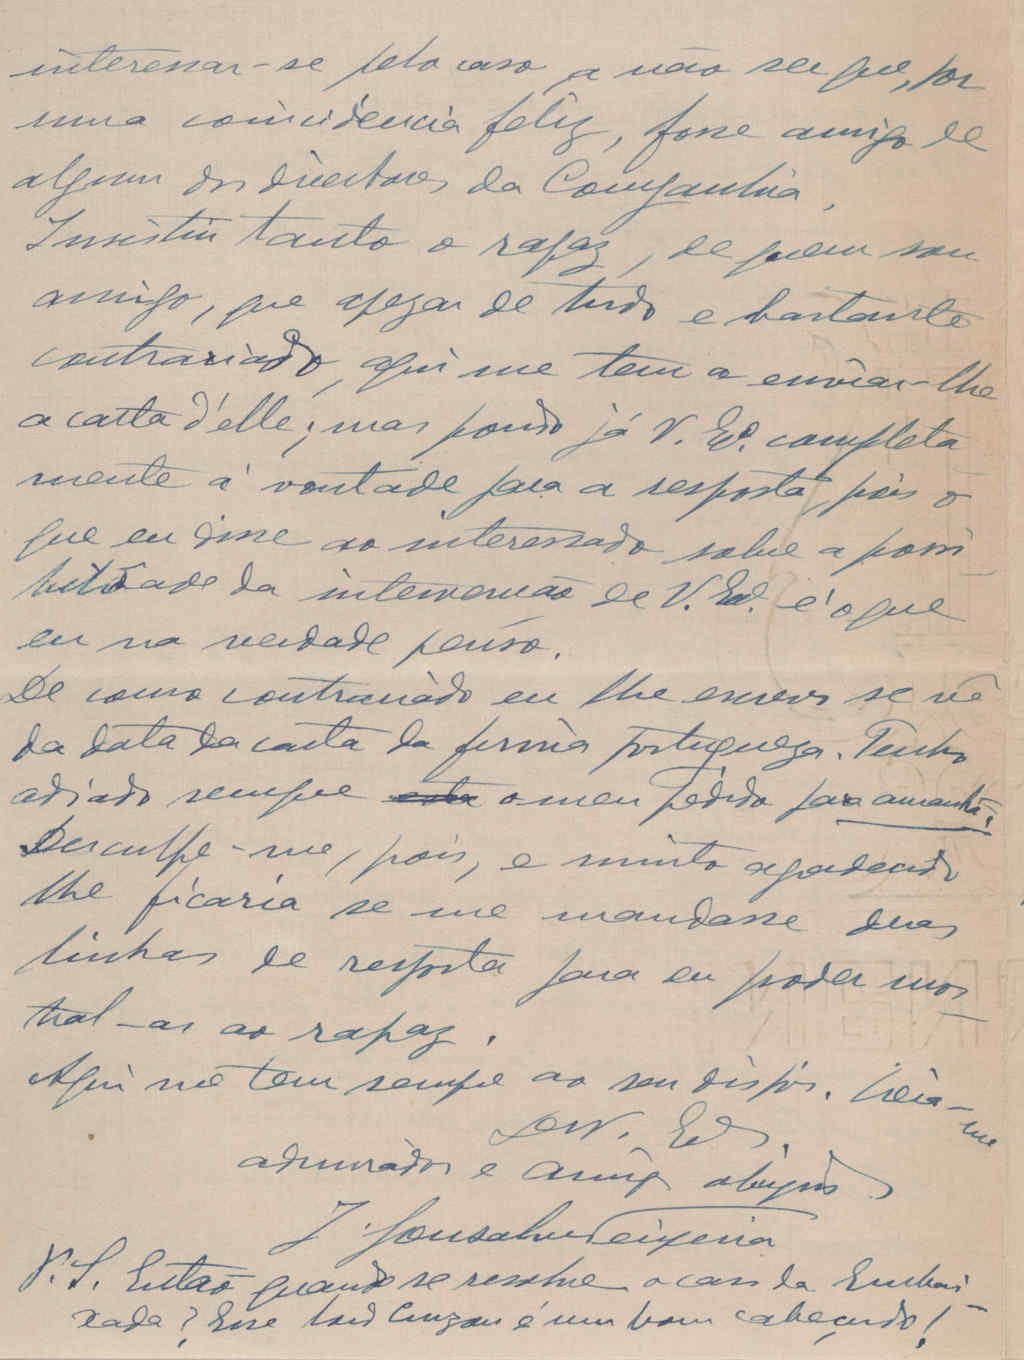 interessar-se pelo caso a não ser que, por
uma coincidencia feliz, fosse amigo de
algum dos directores da Companhia.
Insistiu tanto o rapaz, de quem sou
amigo, que apezar de tudo e bastante
contrariado, aqui me tem a enviar-lhe
a carta d'elle; mas pondo já V. Exª. completa
mente á vontade para a resposta, pois o
que eu disse ao interessado sobre a possi
bilidade da intervenção de V. Exª. é o que
eu na verdade penso.
De como contrariado eu lhe escrevo se vê
da data da carta da firma portugueza. Tenho
adiado sempre o meu pedido para amanhã.
Desculpe-me, pois, e muito agradecido
lhe ficaria se me mandasse duas
linhas de resposta para eu poder mos-
tral-as ao rapaz.
Aqui me tem sempre ao seu dispôr. Creia-me
De V. Exª.
admirador e amigo obrigado
J. Gonsalves Teixeira
P.S. Então quando se resolve o caso da Embai-
xada? Esse Lord é um bom cabeçudo!